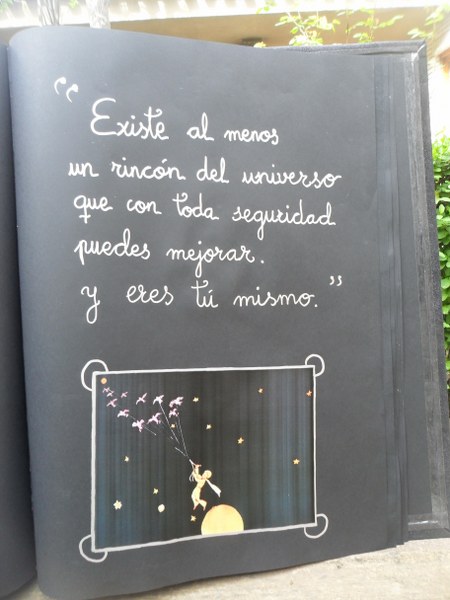 “ Existe al menos
un rincón del universo
que con toda seguridad
puedes mejorar.
y eres tú mismo. ”